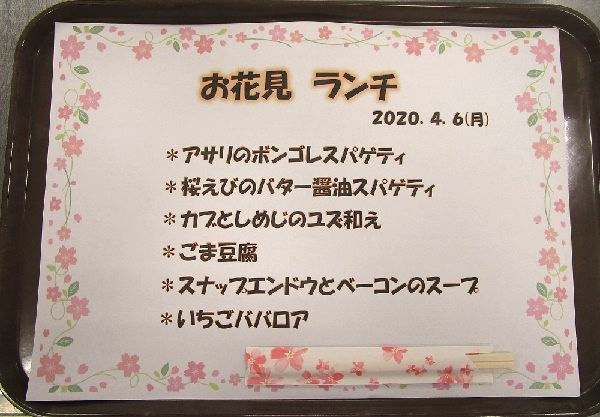 お花見 ランチ
2020. 4. 6(月)
＊アサリのボンゴレスパゲティ
＊桜えびのバター醤油スパゲティ
＊カブとしめじのユズ和え
＊ごま豆腐
＊スナップエンドウとベーコンのスープ
＊いちごババロア